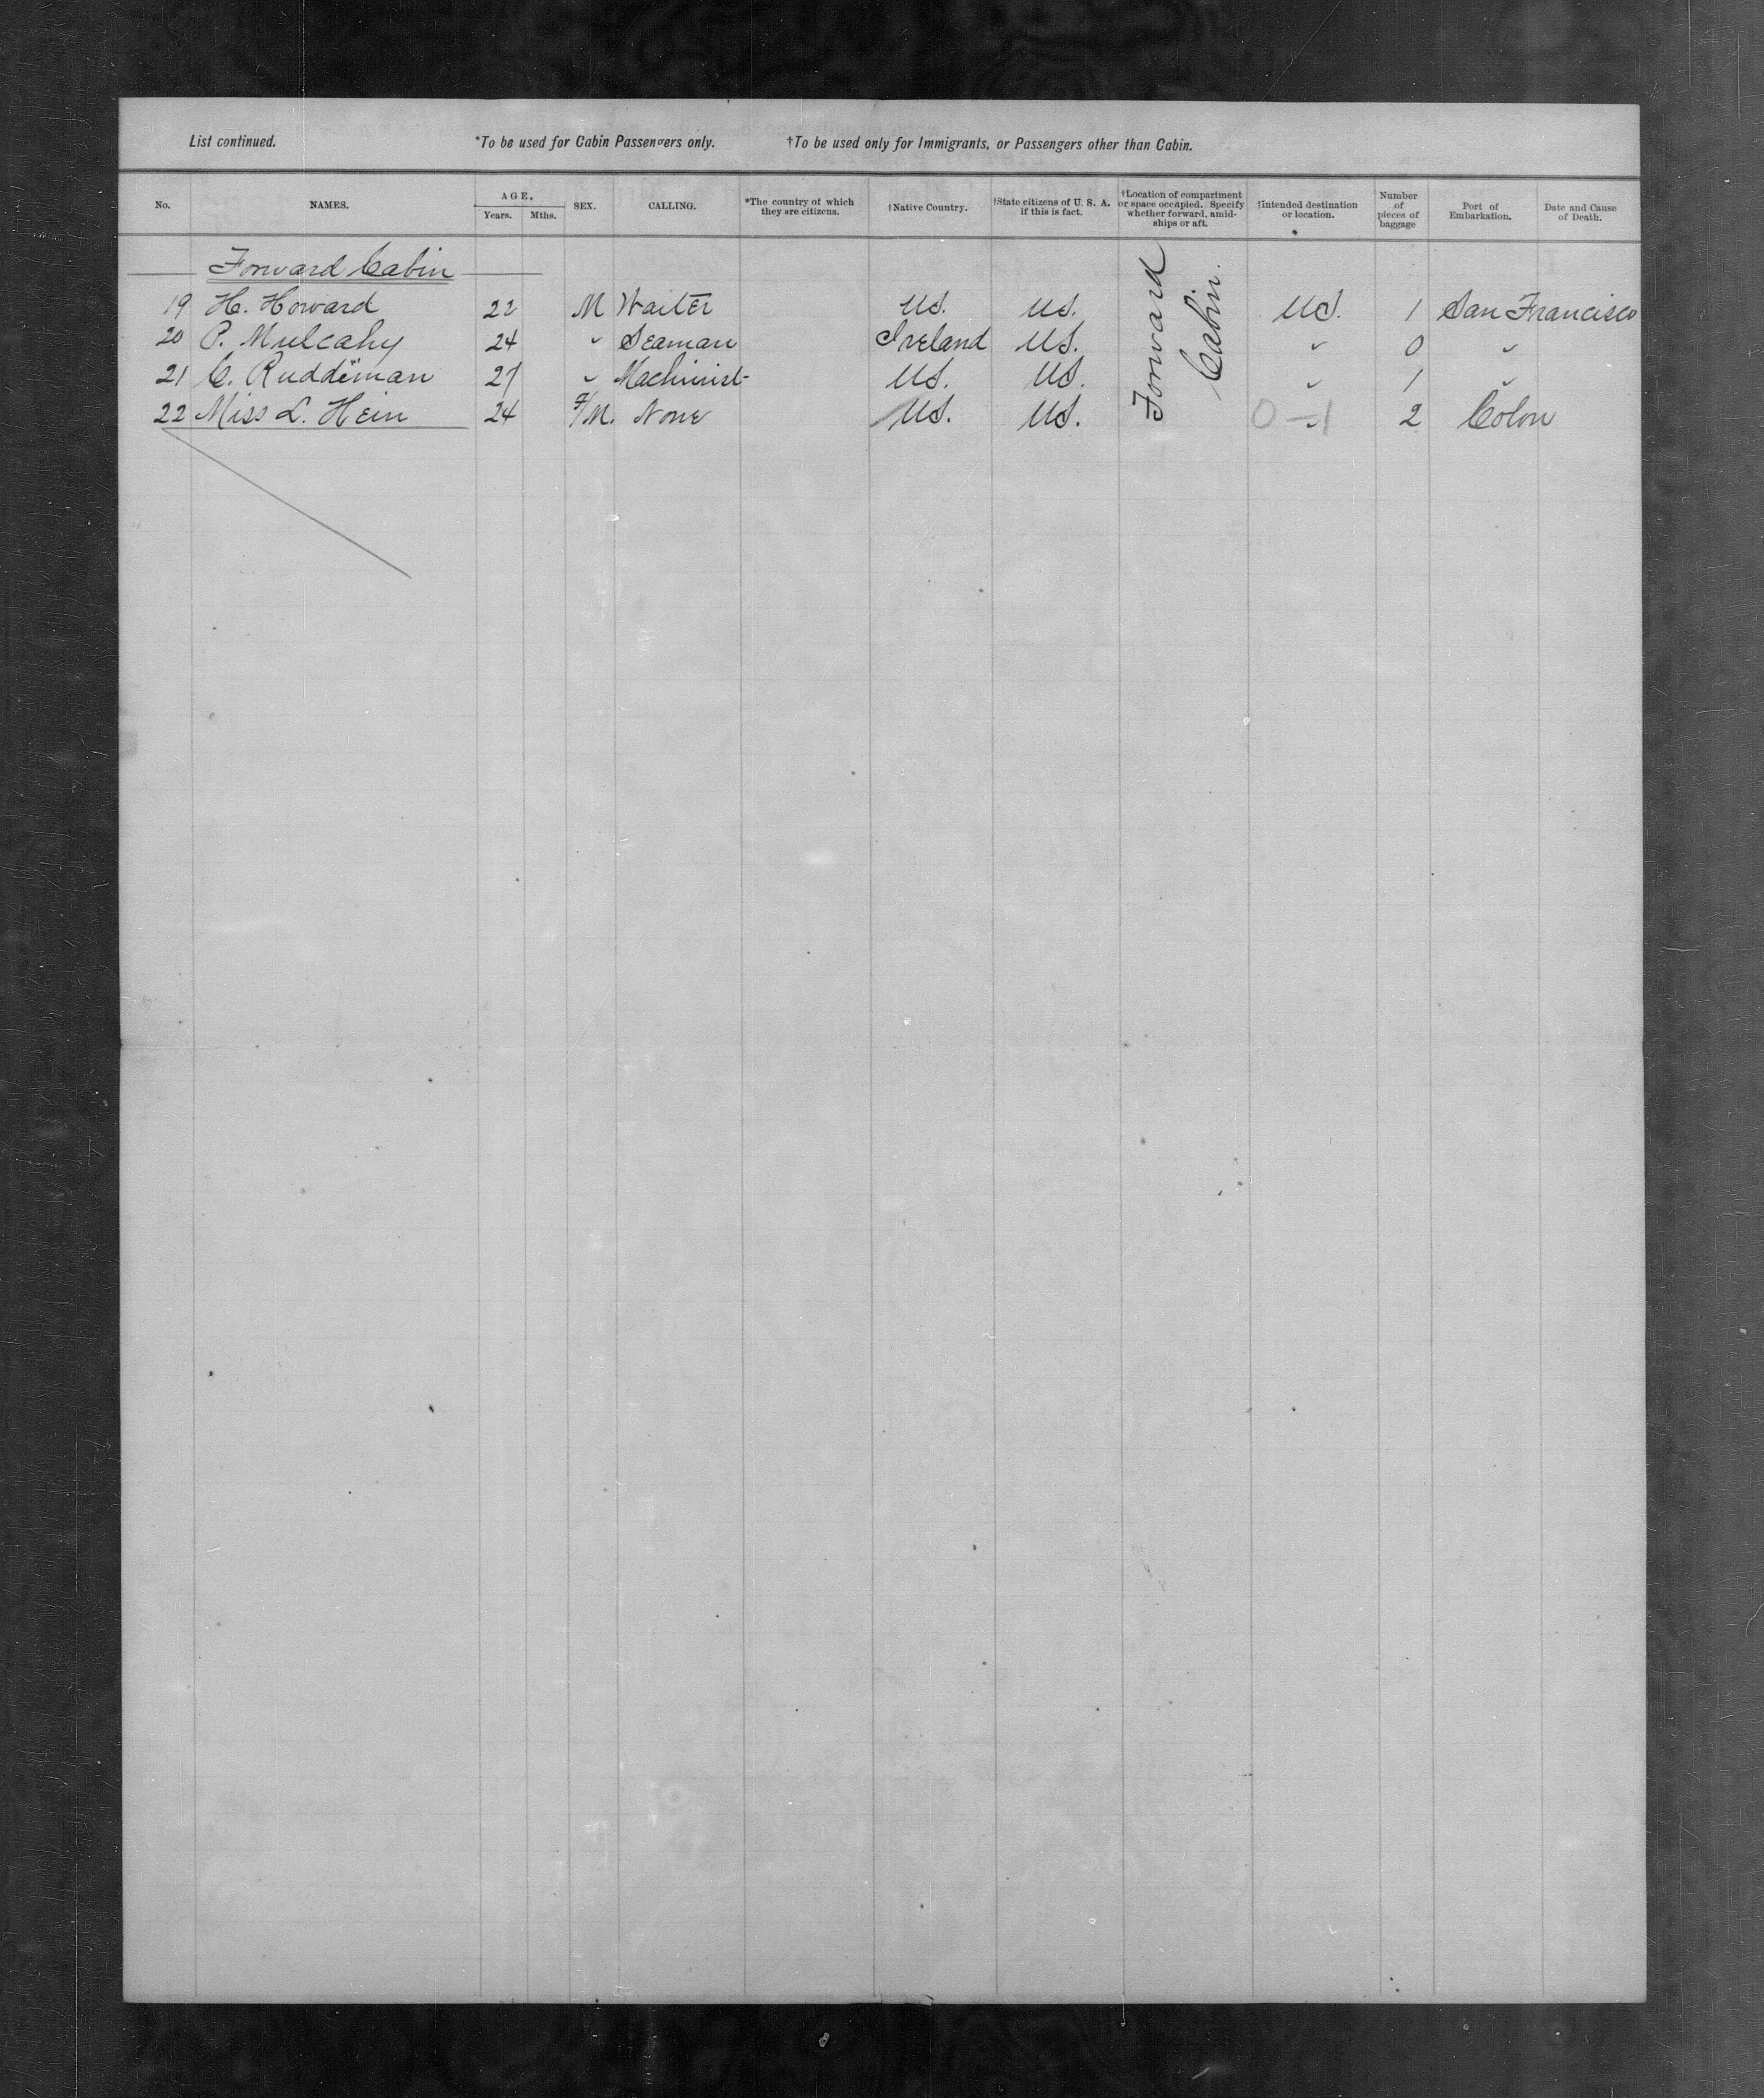 List continued. *To be used for Cabin Passengers only. †To be used only for Immigrants, or Passengers other than Cabin.
No. NAMES. AGE. Years. Mths. SEX. CALLING. *The country of which they are citizens. †Native Country. †State citizens of U. S. A. if this is fact. †Location of compartment or space occupied. Specify whether forward, amidships or aft. †Intended destination or location. Number of pieces of baggage Port of Embarkation. Date and Cause of Death.
Forward Cabin
19 H. Howard 22 M Waiter U.S. U.S. Forward Cabin. U.S. 1 San Francisco
20 P. Mulcahy 24 " Seaman Ireland U.S. " 0 "
21 C. Ruddiman 27 " Machinist U.S. U.S. " 1 "
22 Miss L. Hein 24 F/M. None U.S. U.S. 0-1 " 2 Colon